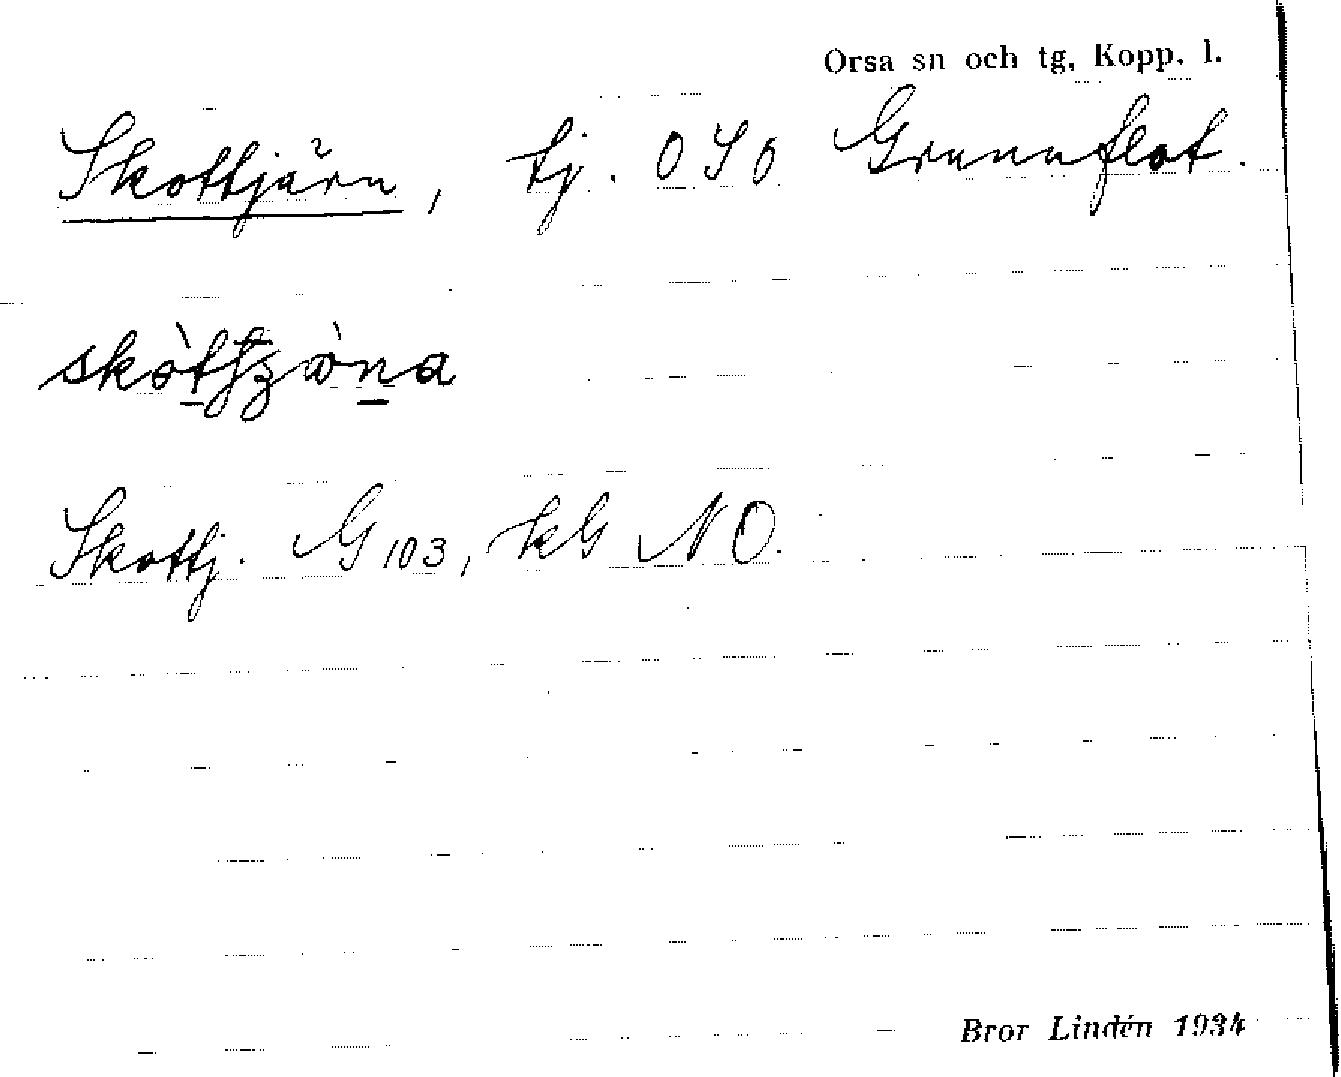 Orsa sn och tg, Kopp. l.
Skottjärn, tj. OSO Grunuflot.
Skottj. G 103, kG NO.
Bror Lindén 1934